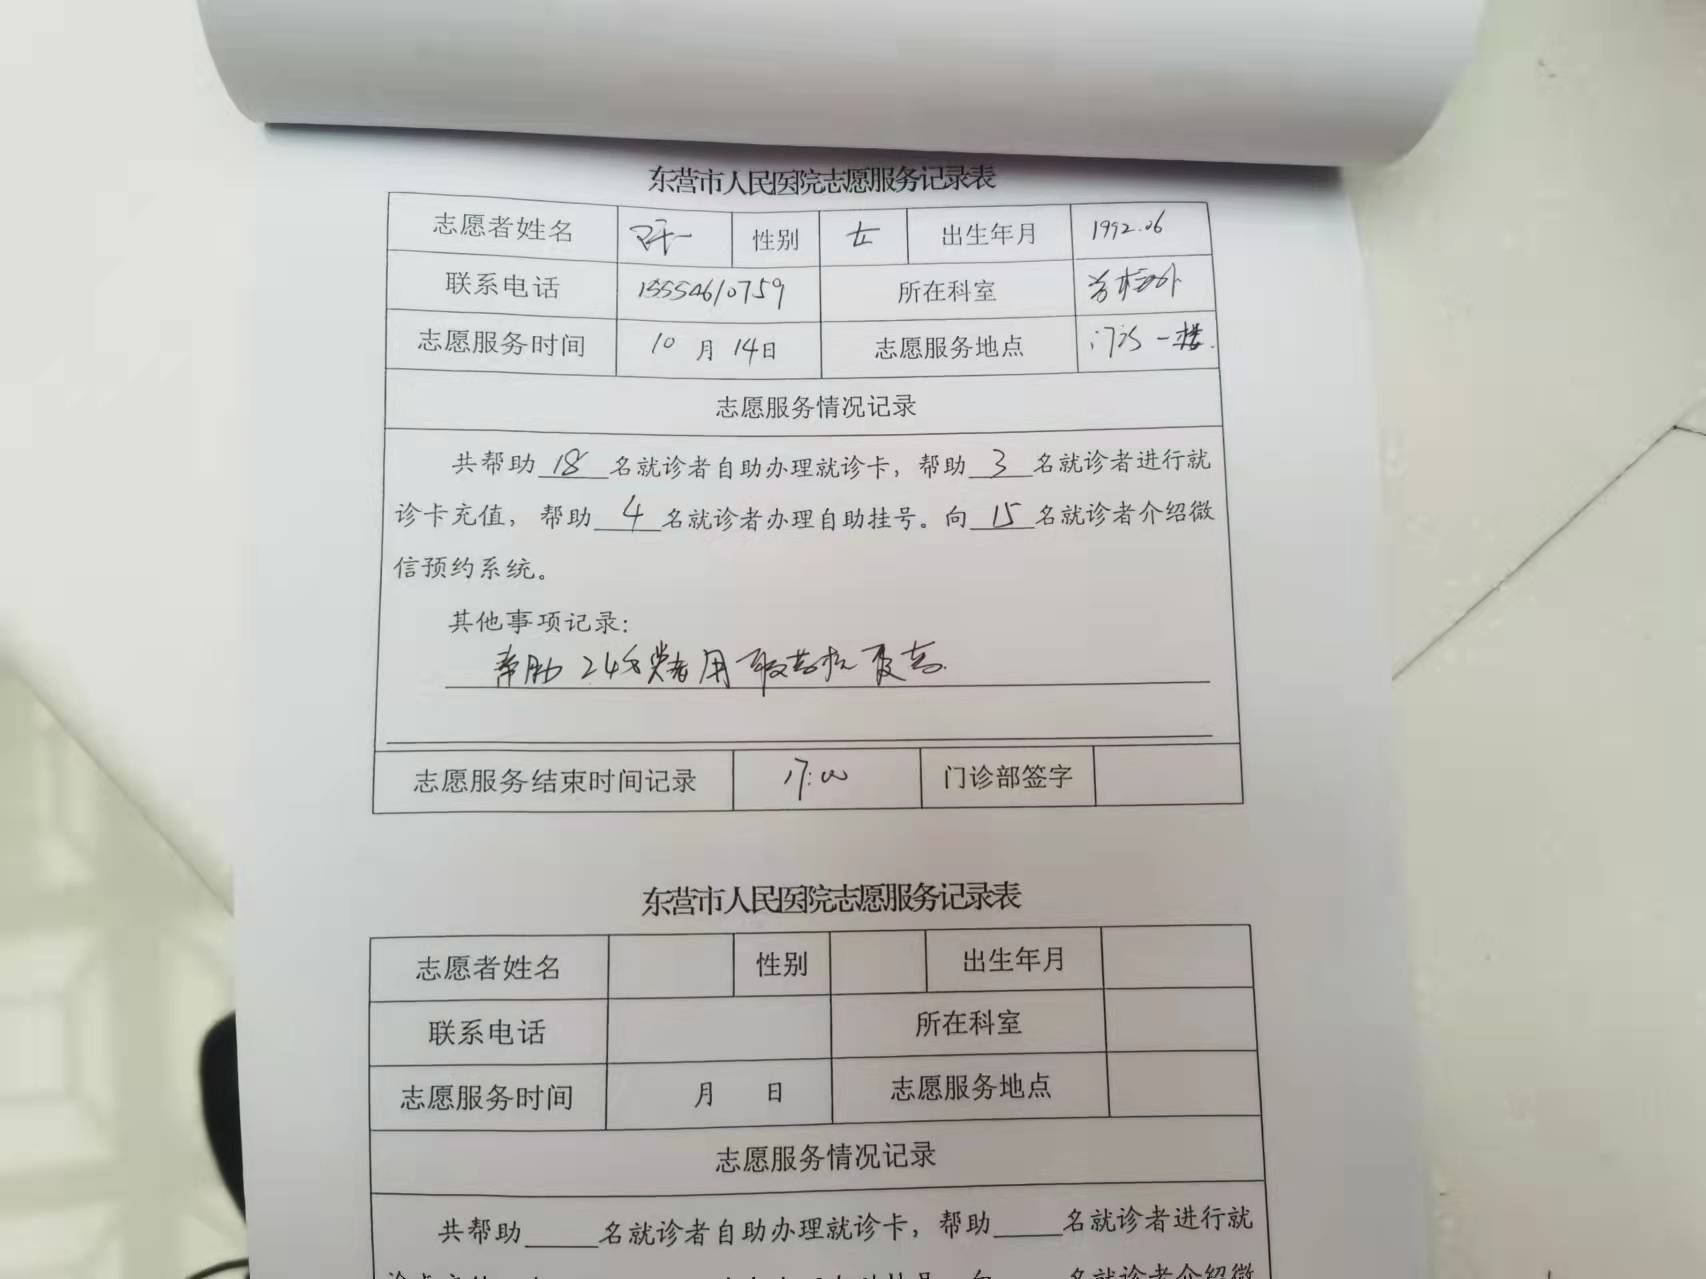 东营市人民医院志愿服务记录表
志愿者姓名 性别 女 出生年月 1992.06
联系电话 15554610759 所在科室
志愿服务时间 10月14日 志愿服务地点 门诊一楼
志愿服务情况记录
共帮助18名就诊者自助办理就诊卡，帮助3名就诊者进行就
诊卡充值，帮助4名就诊者办理自助挂号。向15名就诊者介绍微
信预约系统。
其他事项记录：
帮助24名患者用取药机取药.
志愿服务结束时间记录 17:00 门诊部签字
东营市人民医院志愿服务记录表
志愿者姓名 性别 出生年月
联系电话 所在科室
志愿服务时间 月 日 志愿服务地点
志愿服务情况记录
共帮助_____名就诊者自助办理就诊卡，帮助_____名就诊者进行就